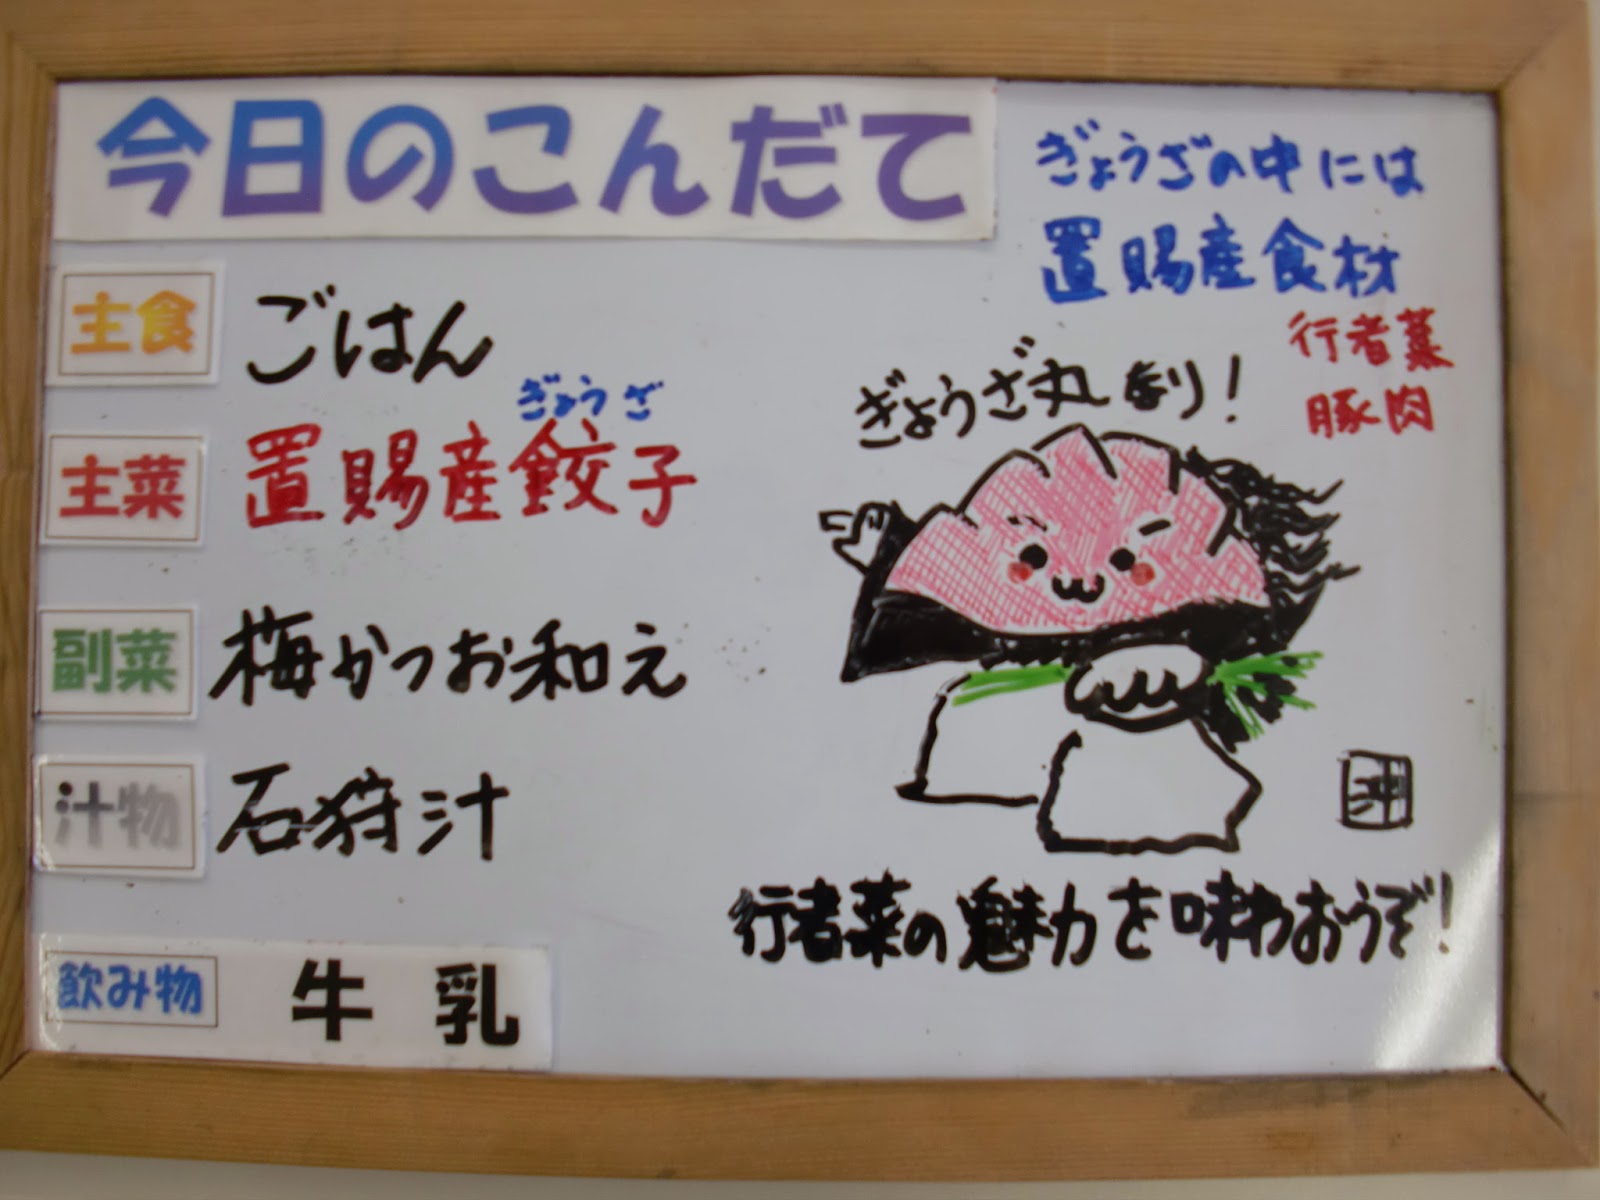 今日のこんだて
主食 ごはん
ぎょうざ
主菜 置賜産餃子
副菜 梅かつお和え
汁物 石狩汁
飲み物 牛乳
ぎょうざの中には
置賜産食材
行者菜
豚肉
ぎょうざ丸なり!
沖
行者菜の魅力を味わおうぞ!